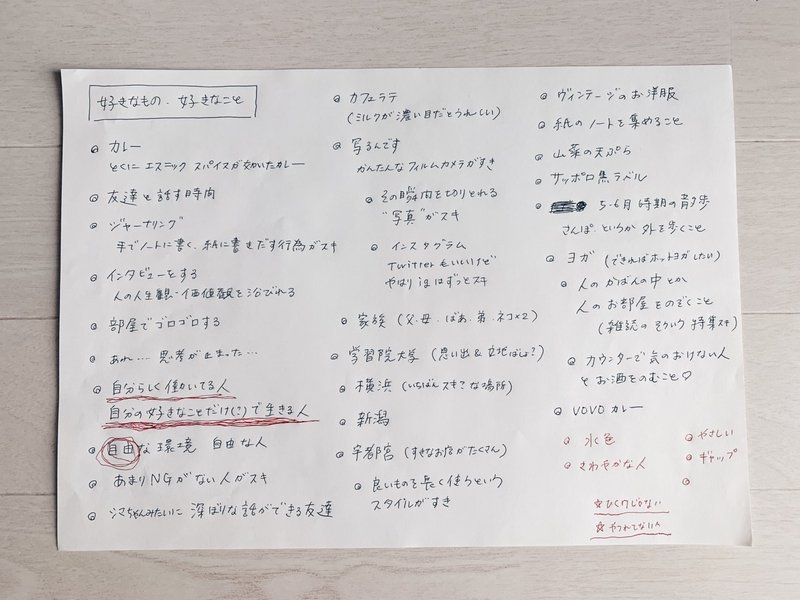 好きなもの・好きなこと
◎ カレー
とくに エスニック スパイスが効いたカレー
◎ 友達と話す時間
◎ ジャーナリング
手でノートに書く、紙に書きだす行為がスキ
◎ インタビューをする
人の人生観・価値観を浴びれる
◎ 部屋でゴロゴロする
◎ あれ… 思考が止まった…
◎ 自分らしく働いてる人
自分の好きなことだけ(?)で生きる人
◎ 自由な環境 自由な人
◎ あまりNGがない人がスキ
◎ シマちゃんみたいに 深ぼりな話ができる友達
◎ カフェラテ
(ミルクが濃い目だとうれしい)
◎ 写るんです
かんたんなフィルムカメラがすき
◎ その瞬間を切りとれる
"写真"がスキ
◎ インスタグラム
Twitterもいいけど
やはりigはずっとスキ
◎ 家族 (父・母・ばあ・弟・ネコ×2)
◎ 学習院大学 (思い出 & 立地ばしょ?)
◎ 横浜 (いちばんスキ?な場所)
◎ 新潟
◎ 宇都宮 (すきなお店がたくさん)
◎ 良いものを長く使うという
スタイルがすき
◎ ヴィンテージのお洋服
◎ 紙のノートを集めること
◎ 山菜の天ぷら
◎ サッポロ黒ラベル
◎ 5-6月時期の散歩
さんぽ、というか 外を歩くこと
◎ ヨガ (できればホットヨガしたい)
◎ 人のかばんの中とか
人のお部屋をのぞくこと
(雑誌のそういう特集スキ)
◎ カウンターで気のおけない人
とお酒をのむこと♡
◎ VOVO カレー
◎ 水色
◎ さわやかな人
◎ やさしい
◎ ギャップ
◎
☆ ひくつじゃない
☆ やつれてない人